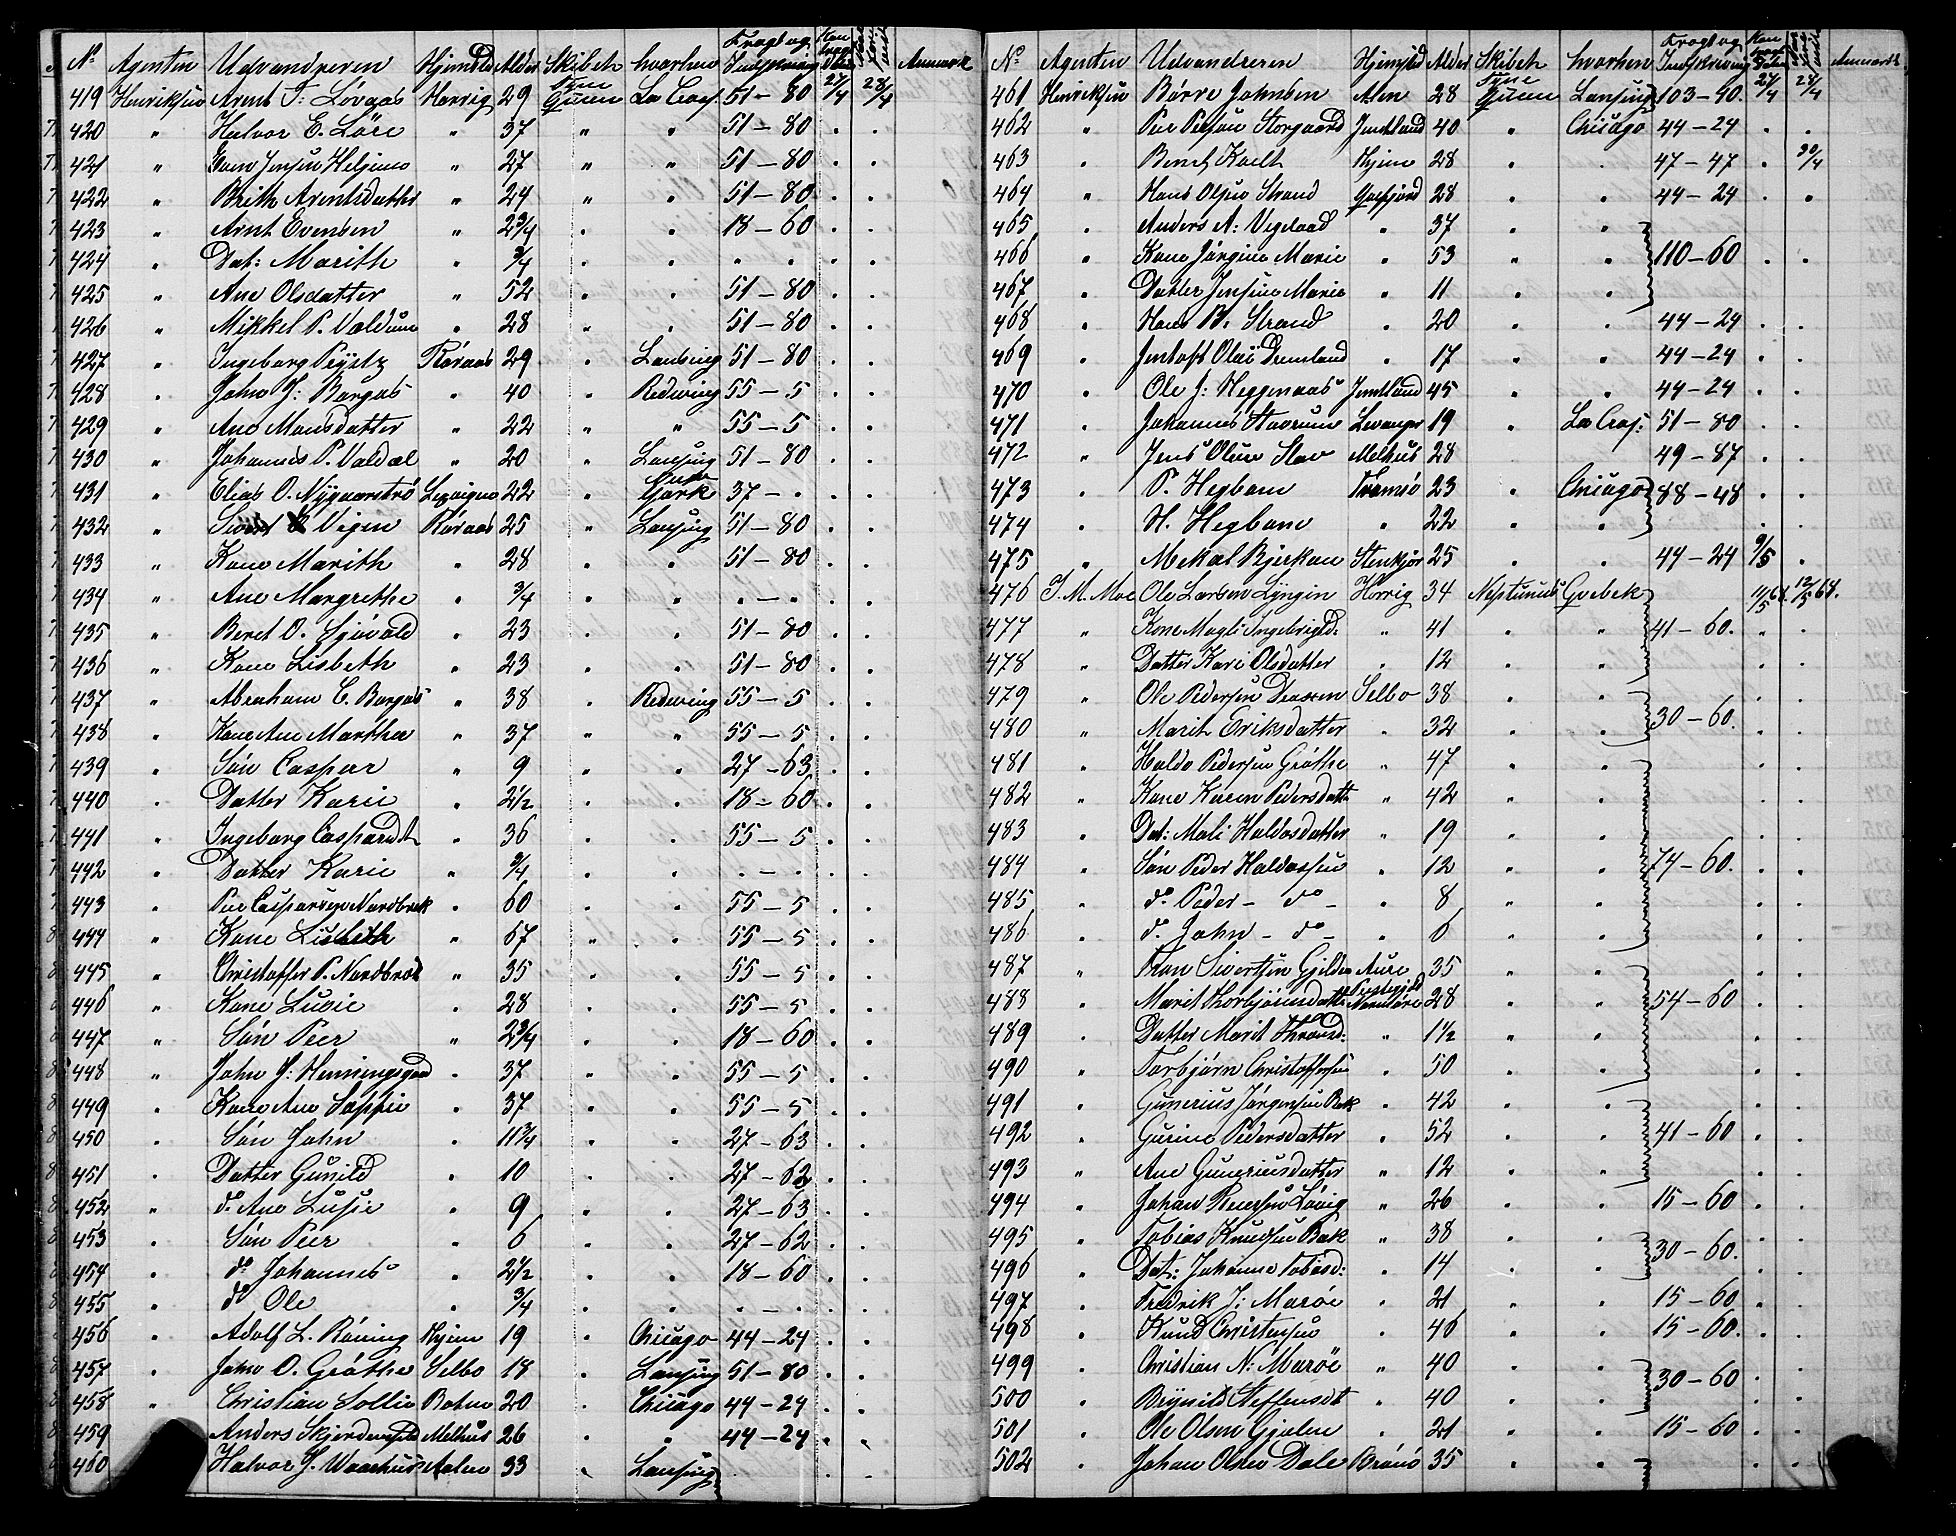 No Agenten Udvandreren Hjemsted Alder Skibet hvorhen Fragt og Indskrivning Anmærk
419 Henriksen Arent J: Løvaas Horrig 29 Tyne Queen La Cros. 51-80 27/4 28/4
420 " Halvor E. Löre " 37 " " 51-80 . .
421 " Jensen " 27 " " 51-80 . .
422 " Brith Arentsdatter " 24 " " 51-80 . .
423 " Arnt Evensen " 2 3/4 . . 18-60 . .
424 " Dat: Marith " 3/4 . " " . .
425 " Ane Olsdatter " 52 . . 51-80 . .
426 " Mikkel P. " 28 " . 51-80 . .
427 " Ingeborg Röraas 29 . Lansing 51-80 . .
428 . John J: Borgos . 40 . Redwing 55-5 . .
429 " Ane Monsdatter " 22 . " 55-5 . .
430 " Johannes P. Valdal . 20 . Lansing 51-80 . .
431 " Elias O. 22 " 37- . . .
432 " Vigen Röraas 25 " Lansing 51-80 . .
433 " Kone Marith . 28 . . 51-80 . .
434 " Ane Margrethe . 3/4 . . . - . . .
435 " Beret O. . 23 . . 51-80 . .
436 " Kone Lisbeth " 23 . . 51-80 . .
437 " Abraham C. Borgos " 38 . Redwing 55-5 . .
438 " Kone Ane Marthea " 37 " " 55-5 . .
439 " Sön Caspar " 9 " . 27-63 . .
440 . Datter Karie " 2 1/2 . . 18-60 . .
441 " Ingeborg Casparsdt " 36 . . 55-5 . .
442 " Datter Karie " 3/4 . . . - . . .
443 " Peer Caspersen " 60 . . 55-5 . .
444 " Kone Lisbeth " 67 " . 55-5 . .
445 " Christoffer P. " 35 " " 55-5 . .
446 " Kone Lusie . 28 . . 55-5 . .
447 " Sön Peer " 2 3/4 . . 18-60 . .
448 " John J: Henningsgaard . 37 " . 55-5 . .
449 . Kone Ane Sophie . 37 . . 55-5 . .
450 . Sön John . 11 3/4 . . 27-63 . .
451 . Datter Gunild . 10 . . 27-62 . .
452 " do Ane Lusie . 9 . . 27-63 . .
453 . Sön Peer " 6 . . 27-62 . .
454 . do Johannes . 2 1/2 . . 18-60 . .
455 " do Ole " 3/4 . . . - . . .
456 . Adolf L. Röning Hjem 19 . Chicago 44-24 . .
457 " John O. Gröthe Selbo 18 . Lansing 51-80 . .
458 " Christian Sollie 20 . Chicago 44-24 . .
459 Anders Melhus 26 . " 44-24 . .
460 Halvor J. Aalen 33 . Lansing . .
No Agenten Udvandreren Hjemsted Alder Skibet hvorhen Fragt og Indskrivning Anmærk
461 Henriksen Börre Johnsen Alen 28 Tyne Queen Lansing 103-40. 27/4 28/4
462 " Peer Persen Storgaard Jemtland 40 . Chicago 44-24 . .
463 . Bernt Hjem 28 . . 47-47 . 30/4
464 " Hans Olsen Strand 28 . . 44-24 . .
465 . Anders A: " 37 . "
466 . Kone Jörgine Marie . 53 " " 110-60 . .
467 . Datter Jensine Marie . 11 . "
468 . Hans B. Strand . 20 . . 44-24 . .
469 . Jentoft Olai . 17 . " 44-24 . .
470 . Ole J: Jemtland 45 . . 44-24 . .
471 . Johannes Levanger 19 . La Cros: 51-80 . .
472 " Jens Melhus 28 49-87 . .
473 " P. Hegbom Tromsö 23 . Chicago 88-48 . .
474 . H. Hegbom " 22 . " . .
475 . Mekal Stenkjær 25 . . 44-24 9/5 .
476 J. M. Moe Ole Larsen Lyngin Horrig 34 Neptunus Qvebek 11/5 68. 12/5 68.
477 " Kone Magli Ingebrigtd. " 41 . " 41-60. " .
478 " Datter Kari Olsdatter . 12 . . . .
479 " Ole Pedersen Selbo 38 . "
480 " Marit Eriksdatter . 32 . . 30-60. . .
481 " Haldo Pedersen Gröthe " 47 " .
482 " Kone Karen Pedersdatt " 42 . . . .
483 " Dat: Mali Haldosdatter " 19 . . . .
484 " Sön Peder Haldossen . 12 . " 74-60. . .
485 . do Peder - do - . 8 . " . .
486 . do John - do - . 6 . . . .
487 " Tron Sivertsen Aure 35 " "
488 " Marit 28 " " 54-60 . .
489 . Datter Marit " 1 1/2 . " . .
490 " Torbjörn Christoffersen . 50 . . . .
491 . Gunerius Jörgensen Bak . 42 . .
492 . Gurine Pedersdatter . 52 . . 41-60 . .
493 " Ane Guneriusdatter " 12 . . . .
494 . Johan " 26 . . 15-60 . .
495 . Tobias Knudsen Bak " 38 . .
496 . Dat: Johanne Tobiasd: . 14 . . 30-60. . .
497 . Fredrik J: Maröe . 21 . . 15-60. . .
498 . Knud Christensen . 46 . . 15-60. . .
499 . Christian N: Maröe " 40 . .
500 . Brynild Steffensdt . 40 . . 30-60 . .
501 . Ole Olsen Gjelen . 21 . . 15-60. . .
502 . Johan Olsen Dale Brönö 35 . " . .